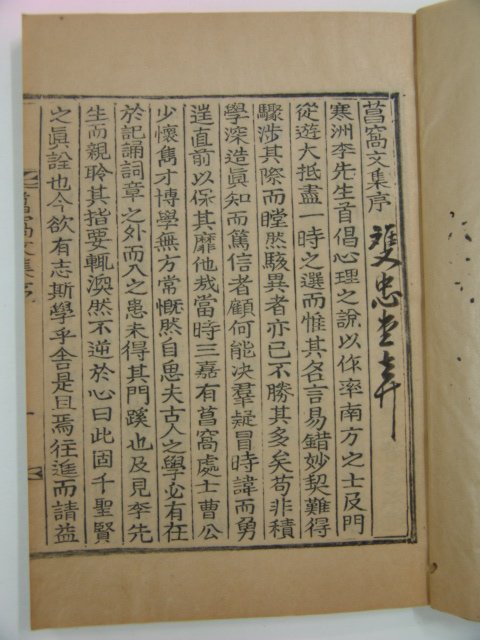 菖窩文集序
雙忠堂弆
寒洲李先生首倡心理之說以作率南方之士及門
從遊大抵盡一時之選而惟其名言易錯妙契難得
驟涉其際而瞠然駭異者亦已不勝其多矣苟非積
學深造眞知而篤信者顧何能决羣疑冒時諱而勇
往直前以保其靡他哉當時三嘉有菖窩處士曹公
少懷雋才博學無方常慨然自思夫古人之學必有在
於記誦詞章之外而入之患未得其門蹊也及見李先
生而親聆其指要輒渙然不逆於心曰此固千聖賢
之眞詮也今欲有志斯學乎舍是曷焉往進而請益
菖窩文集序